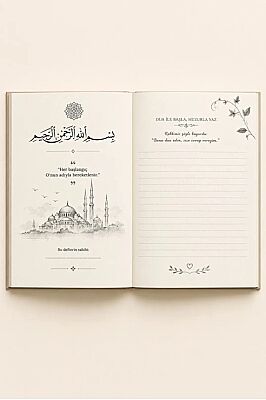 بسم الله الرحمن الرحيم
"Her başlangıç
O'nun adıyla bereketlenir."
Bu defterin sahibi:
DUA İLE BAŞLA, HUZURLA YAZ
Rabbiniz şöyle buyurdu:
"Bana dua edin, size cevap vereyim."